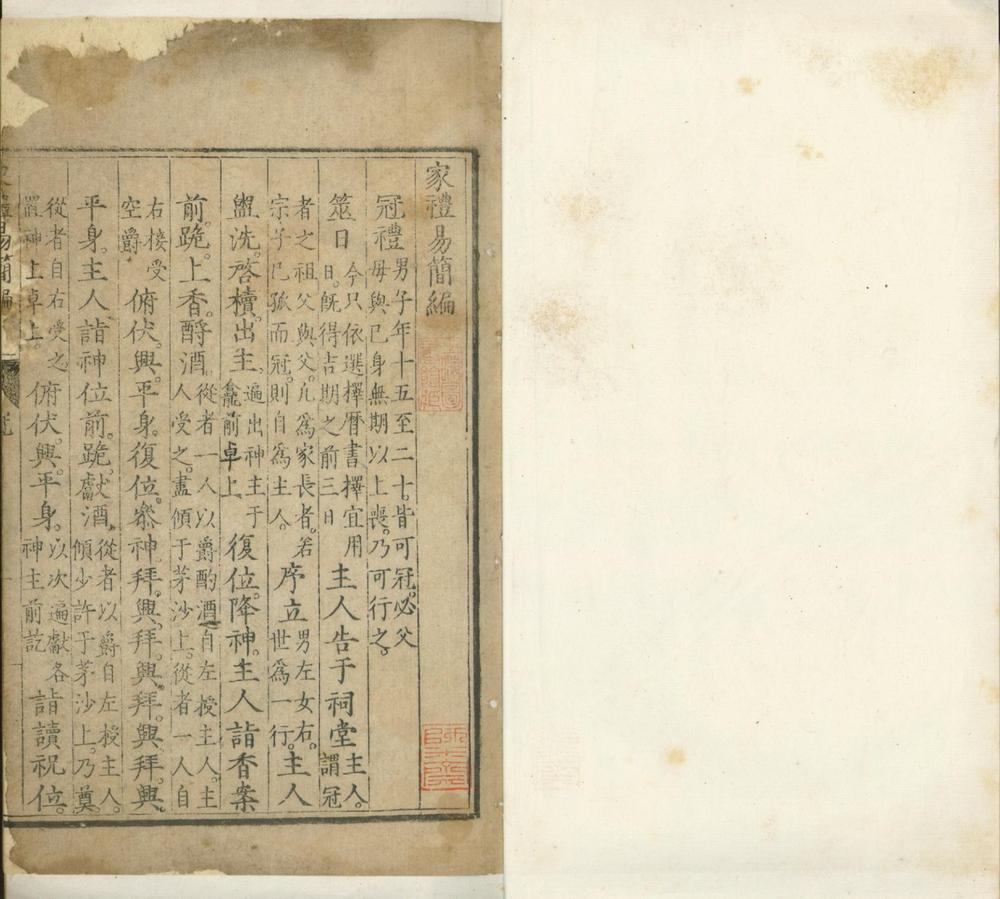 家禮易簡編
冠禮男子年十五至二十。皆可冠。必父
母與已身無期以上喪。乃可行之。
筮日今只依選擇曆書擇宜用
日。旣得吉期之前三日主人告于祠堂主人。
謂冠
者之祖父與父。凡爲家長者。若
宗子已孤而冠。則自爲主人。序立男左女右。
世爲一行。主人
盥洗。啓櫝。出主。遍出神主于
龕前卓上復位。降神。主人詣香案
前。跪。上香。酹酒從者一人以爵酌酒自左授主人。主
人受之。盡傾于茅沙上。從者一人自
右接受
空爵俯伏。興。平身。復位。叅神。拜。興。拜。興。拜。興。拜。興。
平身。主人詣神位前。跪。獻酒。從者以爵自左授主人。
傾少許于茅沙上。乃奠。
從者自右受之
置神上卓上。俯伏。興。平身。以次遍獻各
神主前訖詣讀祝位。